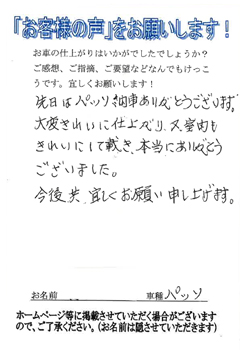 「お客様の声」をお願いします！
お車の仕上がりはいかがでしたでしょうか？
ご感想、ご指摘、ご要望などなんでもけっこ
うです。宜しくお願いします！
先日はパッソ納車ありがとうございます。
大変きれいに仕上がり、又、室内も
きれいにして戴き、本当にありがとう
ございました。
今後共、宜しくお願い申し上げます。
お名前　車種 パッソ
ホームページ等に掲載させていただく場合がございます
ので、ご了承ください。（お名前は隠させていただきます）